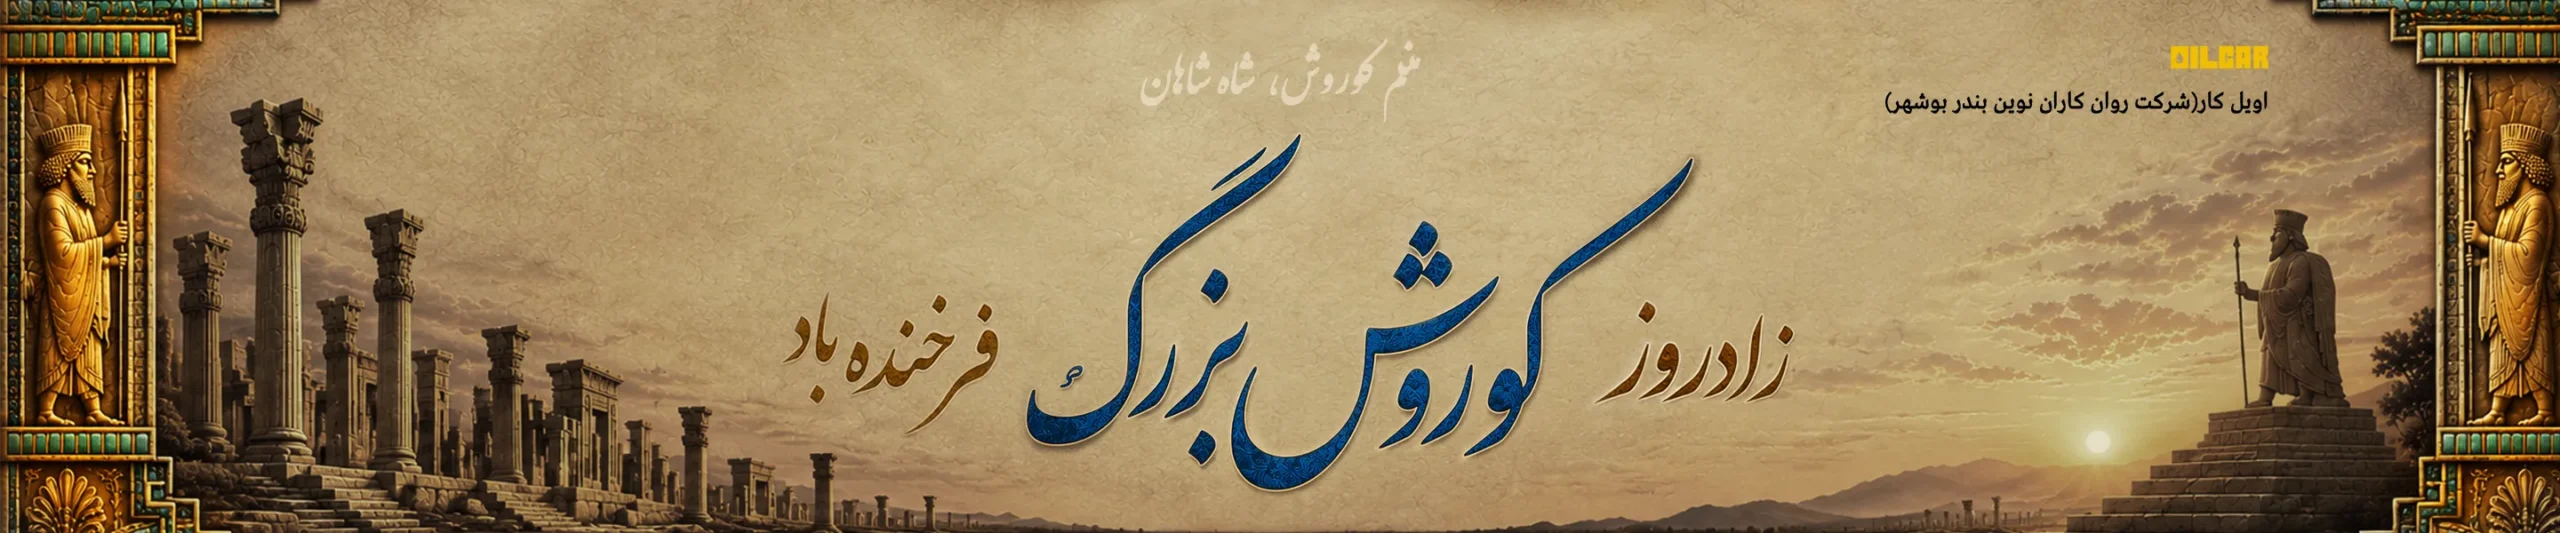 منم کوروش، شاه شاهان
OILCAR
اویل کار(شرکت روان کاران نوین بندر بوشهر)
زادروز کوروش بزرگ فرخنده باد